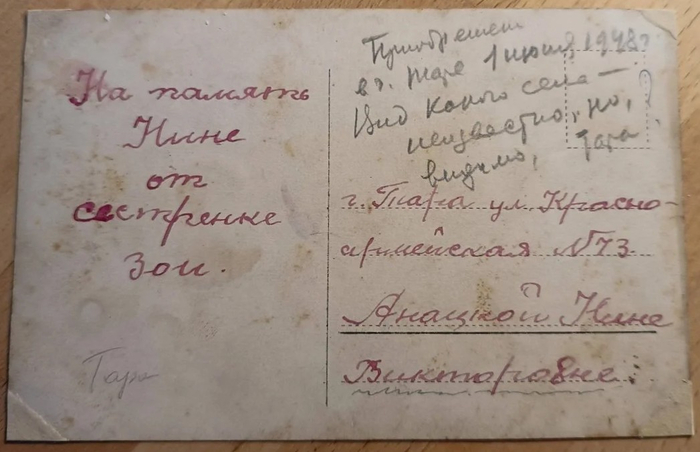 На память
Нине
от
сестренке
Зои.
Тара
Приобретен
в г. Таре 1 июня 1978г
Вид какого села —
неизвестно, но,
видимо, Тара.
г. Тара ул. Красно-
армейская №73.
Анацкой Нине
Викторовне.